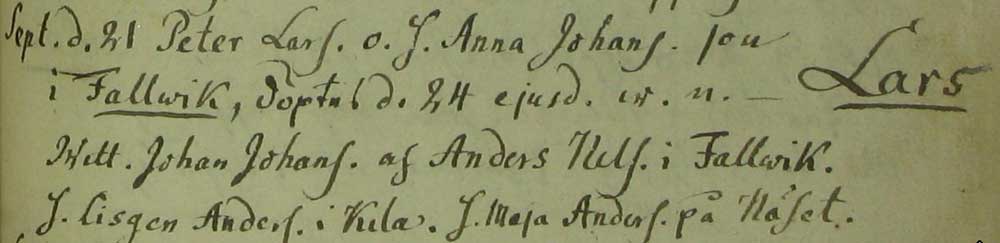 Sept. d. 21 Peter Lars. o. H. Anna Johans. son
i Fallwik, Döptes d. 24 ejusd. w. n. — Lars
Witt. Johan Johans. af Anders Nils. i Fallwik.
H. Lisgen Anders. i Kila. H. Maja Anders. på Näset.